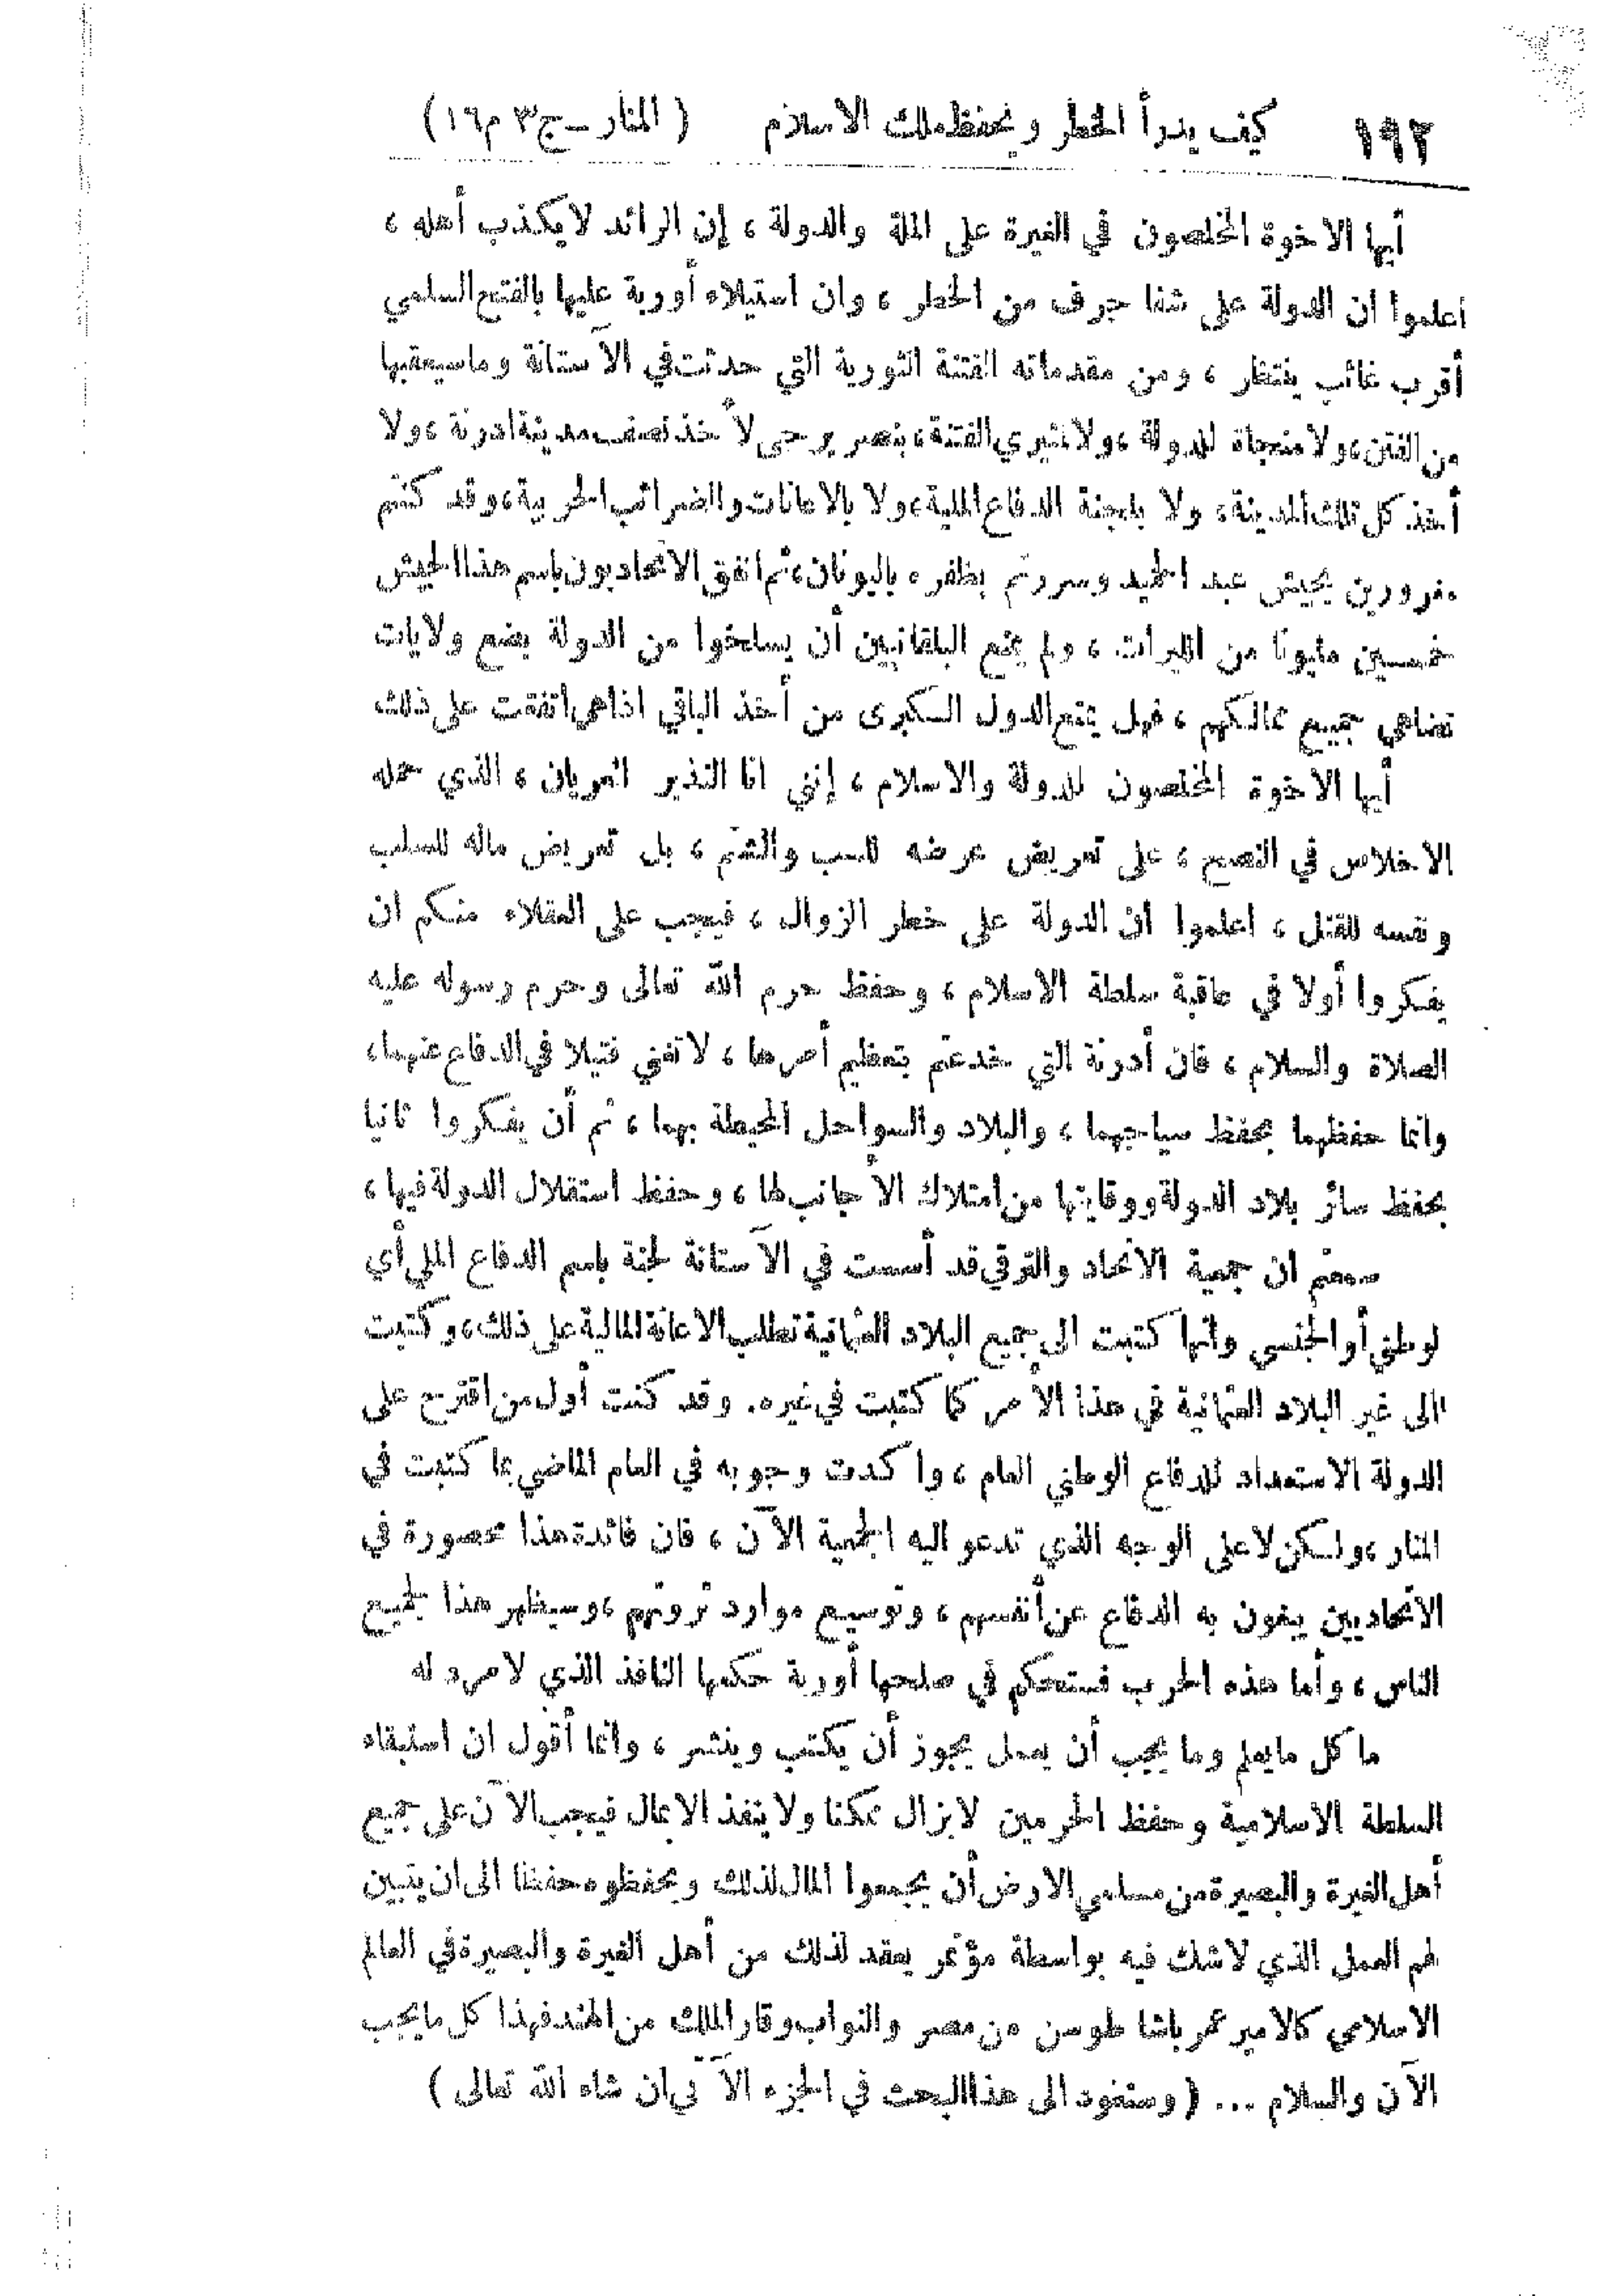 ١٩٢ كيف يدرأ الخطر ويحفظ ملك الاسلام (المنار ـ ج ٣ م ١٦)
أيها الاخوة المخلصون في الغيرة على الملة والدولة ، إن الرائد لا يكذب أهله ،
اعلموا ان الدولة على شفا جرف من الخطر ، وان استيلاء أوربة عليها بالفتح السلمي
أقرب غائب ينتظر ، ومن مقدماته الفتنة الثورية التي حدثت في الآستانة وما سيعقبها
من الفتن ، ولا منجاة للدولة ، ولا لمثيري الفتنة ، بنصر يرجى لأخذ نصف مدينة ادرنة ، ولا
أخذ كل تلك المدينة ، ولا بلجنة الدفاع الملية ، ولا بالاعانات والضرائب الحربية ، وقد كنتم
مغرورين بجيش عبد الحميد وسررتم بظفره باليونان ، ثم انفق الاتحاديون باسم هذا الجيش
خمسين مليونا من الليرات ، ولم يمنع البلقانيين أن يسلخوا من الدولة بضع ولايات
تضاهي جميع ممالكهم ، فهل يمنع الدول الكبرى من أخذ الباقي اذا هي اتفقت على ذلك
أيها الاخوة المخلصون للدولة والاسلام ، إنني انا النذير العريان ، الذي حمله
الاخلاص في النصح ، على تعريض عرضه للسب والشتم ، بل تعريض ماله للسلب
ونفسه للقتل ، اعلموا ان الدولة على خطر الزوال ، فيجب على العقلاء منكم ان
يفكروا أولا في عاقبة سلطة الاسلام ، وحفظ حرم الله تعالى وحرم رسوله عليه
الصلاة والسلام ، فان أدرنة التي خدعتم بتعظيم أمرها ، لا تغني فتيلا في الدفاع عنهما ،
وانما حفظهما بحفظ سياجهما ، والبلاد والسواحل المحيطة بهما ، ثم أن يفكروا ثانيا
بحفظ سائر بلاد الدولة ووقايتها من امتلاك الأجانب لها ، وحفظ استقلال الدولة فيها ،
سمعتم ان جمعية الاتحاد والترقي قد أسست في الآستانة لجنة باسم الدفاع الملي أي
لوطني أو الجنسي وانها كتبت الى جميع البلاد العثمانية تطلب الاعانة المالية على ذلك ، وكتبت
الى غير البلاد العثمانية في هذا الأمر كما كتبت في غيره . وقد كنت أول من اقترح على
الدولة الاستعداد للدفاع الوطني العام ، وأكدت وجوبه في العام الماضي بما كتبت في
المنار ، ولكن لا على الوجه الذي تدعو اليه الجمعية الآن ، فان فائدة هذا محصورة في
الاتحاديين يبغون به الدفاع عن أنفسهم ، وتوسيع موارد ثروتهم ، وسيظهر هذا لجميع
الناس ، وأما هذه الحرب فستحكم في صلحها أوربة حكمها النافذ الذي لا مرد له
ما كل ما يعلم وما يجب أن يعمل يجوز أن يكتب وينشر ، وانما أقول ان استبقاء
السلطة الاسلامية وحفظ الحرمين لا يزال ممكنا ولا ينفذ الا بمال فيجب الآن على جميع
أهل الغيرة والبصيرة من مسلمي الارض أن يجمعوا المال لذلك ويحفظوه حفظا الى ان يتبين
لهم العمل الذي لا شك فيه بواسطة مؤتمر يعقد لذلك من أهل الغيرة والبصيرة في العالم
الاسلامي كالامير عمر باشا طوسن من مصر والنواب وقار الملك من الهند فهذا كل ما يجب
الآن والسلام ... ( وسنعود الى هذا البحث في الجزء الآتي ان شاء الله تعالى )